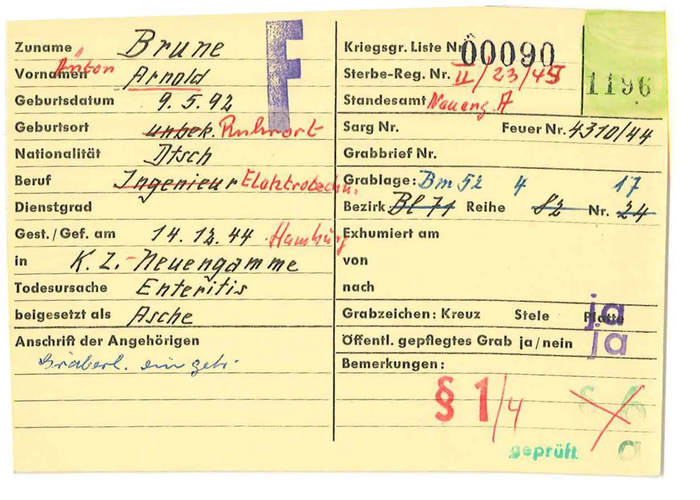 Zuname Brune
Vornamen Anton Arnold
Geburtsdatum 9.5.92
Geburtsort unbek. Ruhrort
Nationalität Dtsch
Beruf Ingenieur
Dienstgrad
Gest./Gef. am 14.12.44 Hamburg
in K.Z.-Neuengamme
Todesursache Enteritis
beigesetzt als Asche
Anschrift der Angehörigen
Gräberl. eingetr.
F
Kriegsgr. Liste Nr. 00090
Sterbe-Reg. Nr. II/23/45
Standesamt Neueng. A
1196
Sarg Nr. Feuer Nr. 4310/44
Grabbrief Nr.
Grablage: Bm 52 4 17
Bezirk Bl 71 Reihe 82 Nr. 24
Exhumiert am
von
nach
Grabzeichen: Kreuz Stele Platte ja
Öffentl. gepflegtes Grab ja/nein ja
Bemerkungen:
§ 1/4 § 6
geprüft